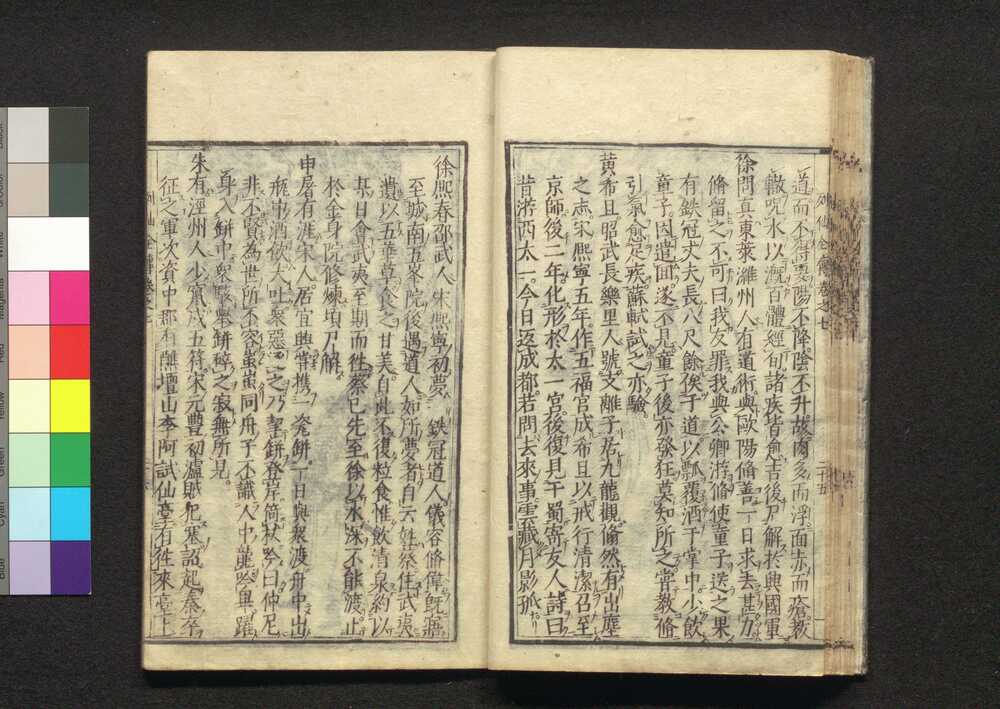 道而不得裏陽不降陰不升故肉多而浮面赤而瘡教
轍呪水以漑百體經旬諸疾皆愈吉後尸解於興國軍
徐問真東萊濰州人有道術與歐陽脩善一日求去甚力
脩留之不可曰我友罪我與公卿游脩使童子送之果
有鉄冠丈夫長八尺餘俟于道以瓢覆酒于掌中少飲
童子因遣回遂不見童子後亦發狂莫知所之嘗教脩
引氣愈足疾蘇軾試之亦驗
黄希旦昭武長樂里人號支離子居九龍觀翛然有出塵
之志宋熙寧五年作五福宮成希旦以戒行清潔召至
京師後二年化形於太一宮後復見于蜀寄友人詩曰
昔游西太一今日返成都若問去來事雲藏月影孤
徐熙春邵武人宋熙寧初夢鉄冠道人儀容脩偉既寤
至城南五峯院後遇道人如所夢者自云姓蔡住武夷
遺以五華草食之甘美自此不復粒食惟飲清泉約以
某日會武夷至期而往蔡已先至徐以水深不能渡止
於金身院修煉頃刀解
申屠有涯宋人居宜興嘗携一瓷餅一日與衆渡舟中出
瓶中酒飲大吐衆惡之乃挈餅登岸倚杖吟曰仲尼
非不賢為世所不容蚩蚩同舟子不識人中龍吟畢躍
身入餅中衆駭擊餅碎之寂無所見
朱有涇州人少寓戍五符宋元豐初瀘賊犯塞詔起秦卒
征之軍次資中郡有醮壇山李阿試仙臺有往來臺上
列仙全傳卷之七
二十五